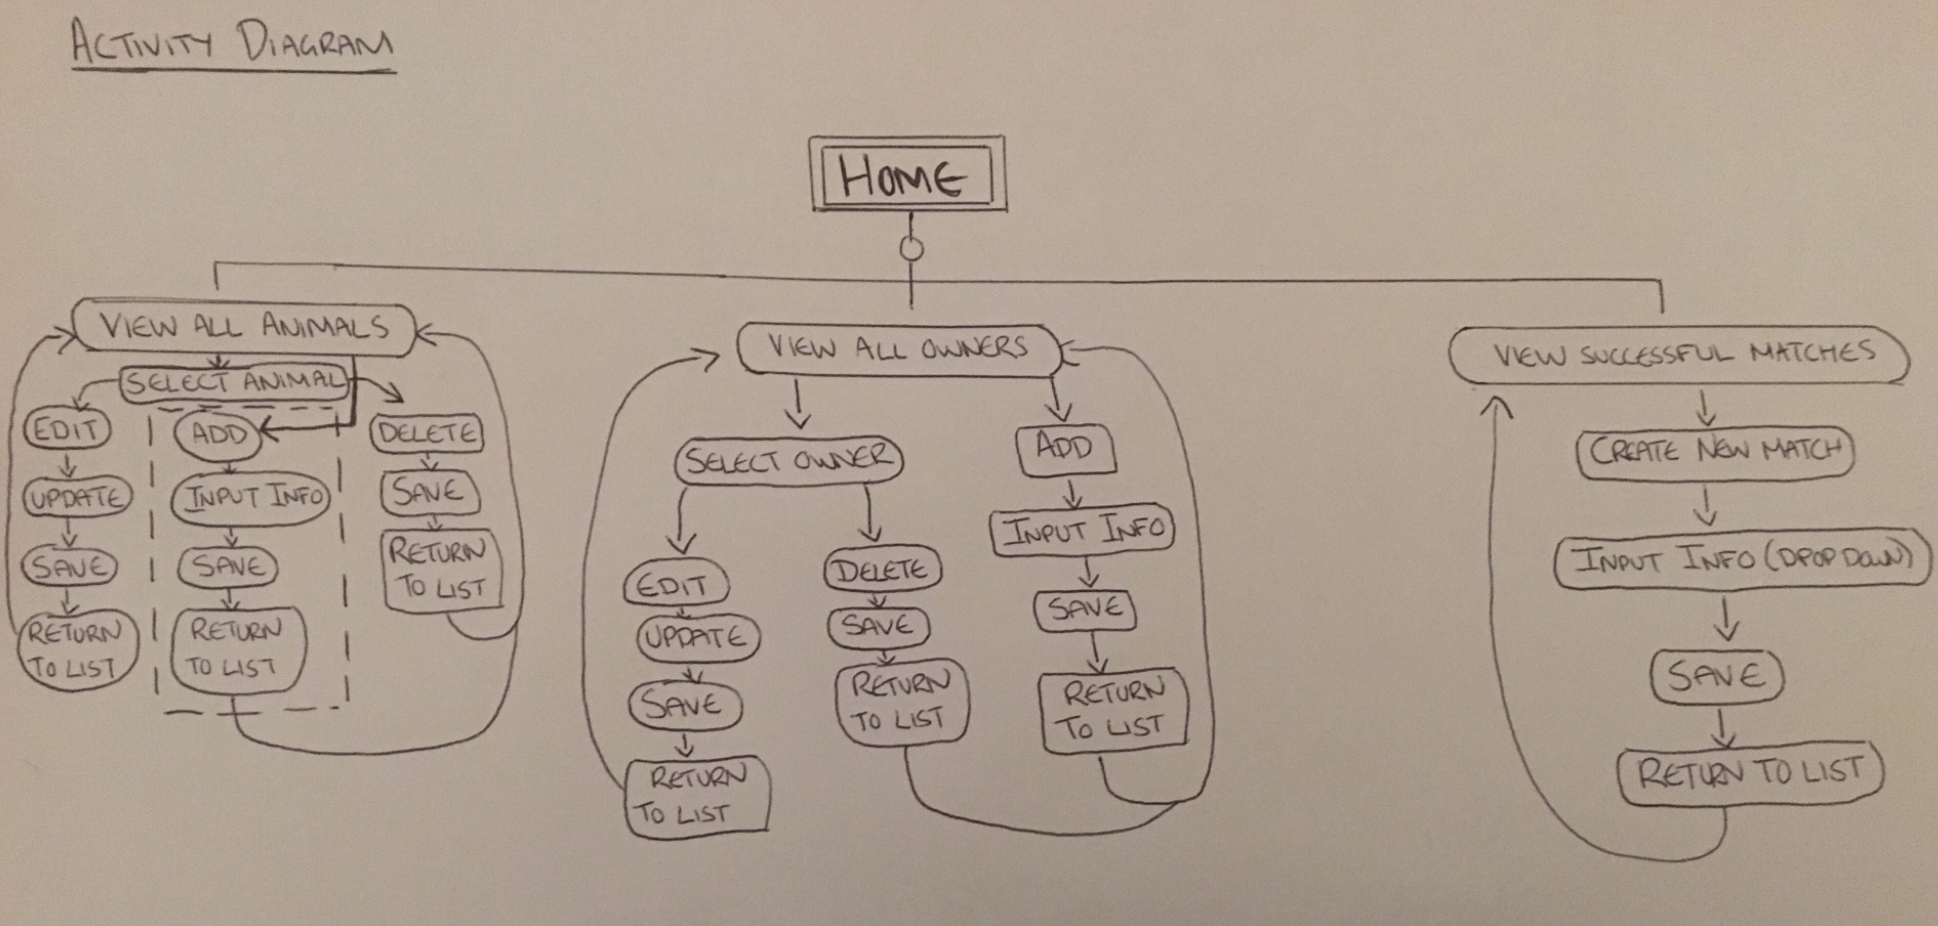 ACTIVITY DIAGRAM
HOME
VIEW ALL ANIMALS
SELECT ANIMAL
EDIT
UPDATE
SAVE
RETURN
TO LIST
ADD
INPUT INFO
SAVE
RETURN
TO LIST
DELETE
SAVE
RETURN
TO LIST
VIEW ALL OWNERS
SELECT OWNER
EDIT
UPDATE
SAVE
RETURN
TO LIST
DELETE
SAVE
RETURN
TO LIST
ADD
INPUT INFO
SAVE
RETURN
TO LIST
VIEW SUCCESSFUL MATCHES
CREATE NEW MATCH
INPUT INFO (DROP DOWN)
SAVE
RETURN TO LIST